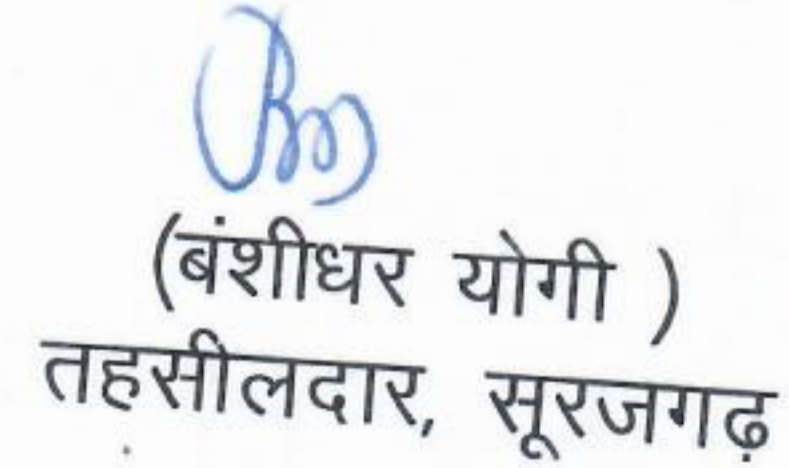 (बंशीधर योगी )
तहसीलदार, सूरजगढ़